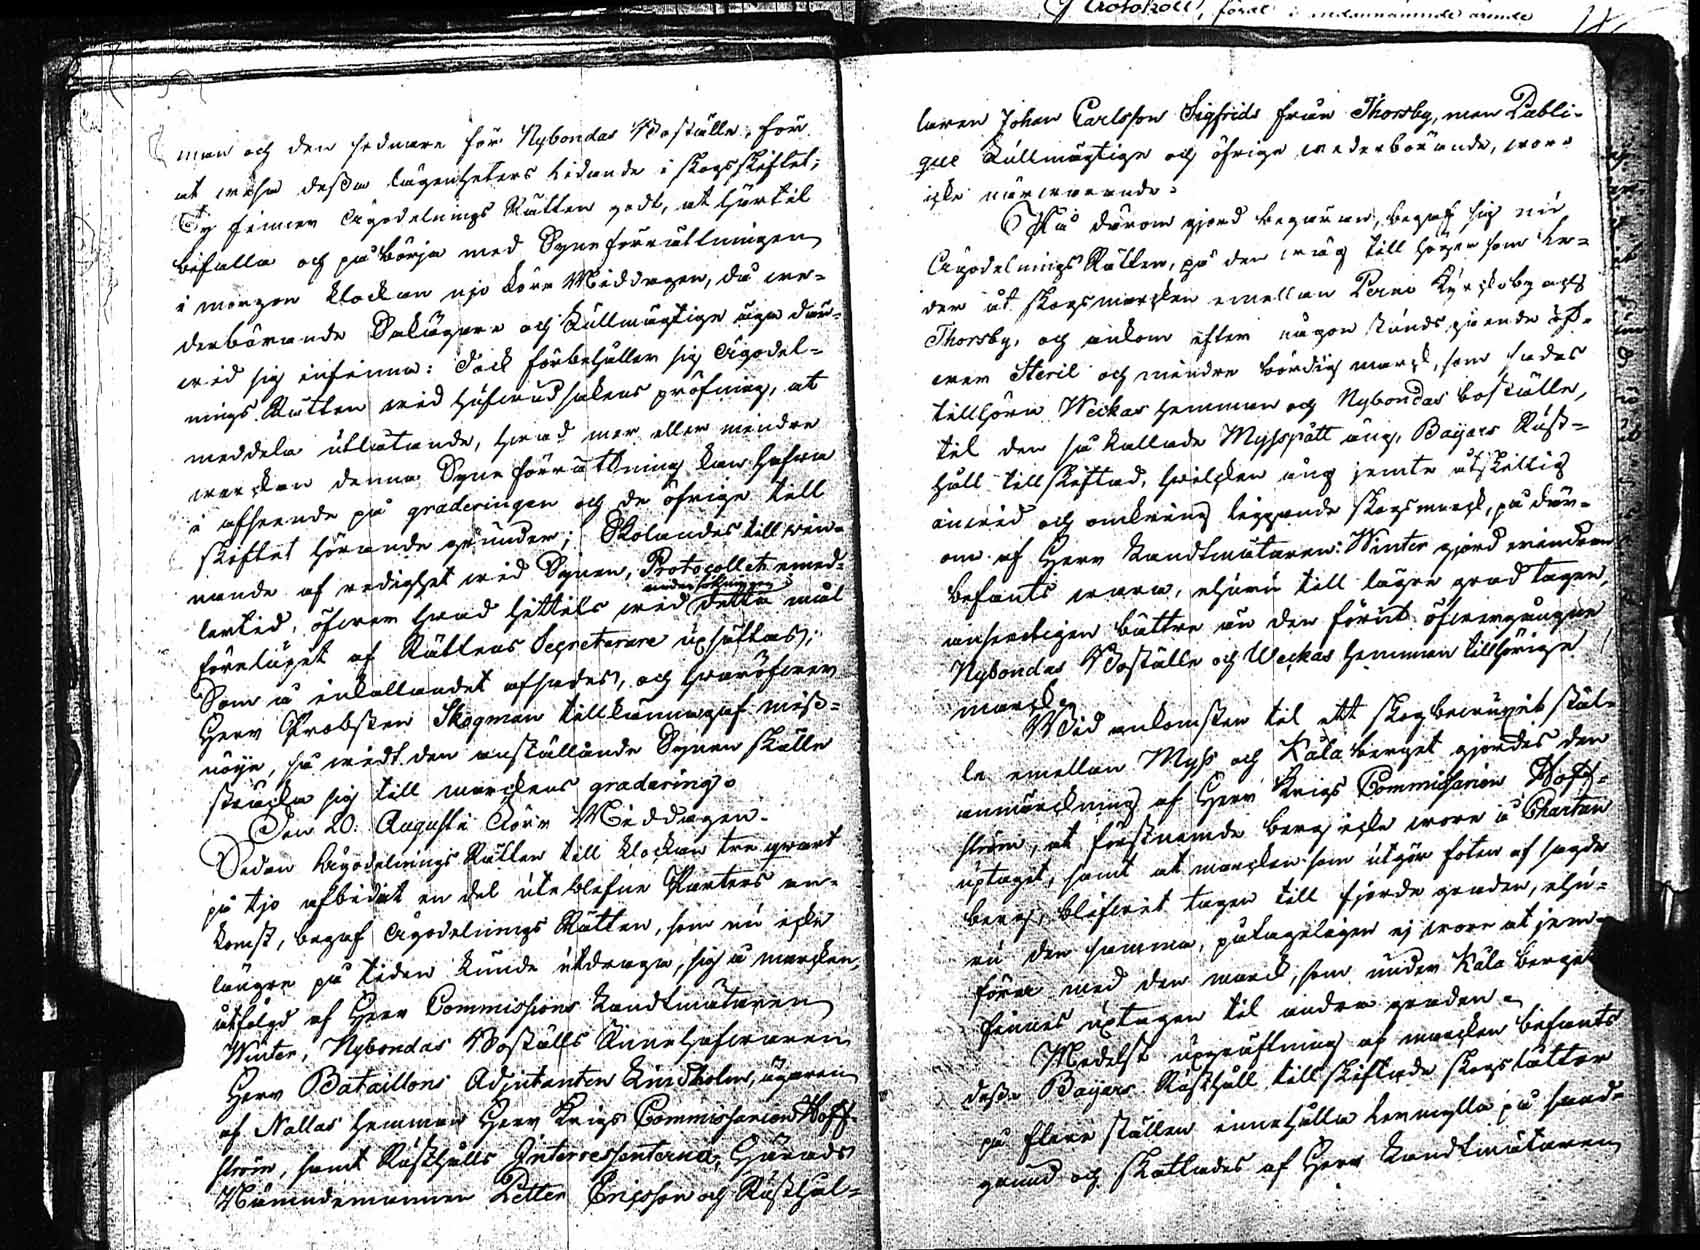 Protokoll, fördt i nedannämnde ärende
man och den sednare för Nybondas Boställe, för
at wisa dessa lägenheters lidande i skogsskiftet;
Ty finner Ägodelnings Rätten godt, at härtil
bifalla och påbörja med Syneförrättningen
i morgon klockan nijo före Middagen, då we-
derbörande Sakägare och Fullmägtige äga där-
wid sig infinna: Dock förbehåller sig Ägodel-
nings Rätten wid hufwudsakens pröfning, at
meddela utlåtande, hwad mer eller mindre
wärckan denna Syneförrättning kan hafwa
i afseende på graderingen och de öfrige till
skiftet hörande grunder; Skolandes till win-
nande af redighet wid Synen, Protocollet emed-
lertid, öfwer hwad hittils wid detta mål
undersökningen
förelupit af Rättens Secreterare upsättas;
Som å inkallandet afsades, och hwaröfwer
Herr Probsten Skogman tillkännagaf miss-
nöije, så widt den anställande Synen skulle
sträcka sig till marckens gradering.
Den 20. Augusti före Middagen.
Sedan Ägodelnings Rätten till klockan tre qwart
på tijo afbidat en del uteblefne Parters an-
komst, begaf Ägodelnings Rätten, som nu icke
längre på tiden kunde utdraga, sig å marcken,
åtföljd af Herr Commissions Landtmätaren
Winter, Nybondas Boställs Innehafwaren
Herr Bataillons Adjutanten Lindholm, ägaren
af Nallas hemman Herr Krigs Commissarien Hoff-
ström, samt Rusthålls Interessenterna, Härads
Nämndemannen Petter Ericsson och Rusthål-
laren Johan Carlsson Sigfrids från Thorsby, men Publi-
que Fullmägtige och öfrige wederbörande, woro
icke närwarande.
På därom gjord begäran, begaf sig nu
Ägodelnings Rätten, på den wäg till höger som le-
der åt skogsmarcken emellan Perno Kyrckoby och
Thorsby, och ankom efter någon stunds gående öf-
wer Steril och mindre bördig marck, som sades
tillhöra Weckas hemman och Nybondas boställe,
til den så kallade Myssjött äng, Baijars Rust-
håll tillskiftad, hwilcken äng jemte åtskillig
inwid och omkring liggande skogsmarck, på där-
om af Herr Landtmätaren Winter gjord erindran
befants wara, ehuru till lägre grad tagen,
ansenligen bättre än den förut öfwergångne
Nybondas Boställe och Weckas hemman tillhörige
marck.
Wid ankomsten til ett skogbewuxit stäl-
le emellan Myss och Kåla berget gjordes den
anmärckning af Herr Krigs Commissarien Hoff-
ström, at förstnämde berg icke wore å Chartan
uptaget, samt at marcken som utgör foten af sagde
berg, blifwit tagen till fjerde graden, ehu-
ru den samma, påtageligen ej wore at jem-
föra med den marck, som under Kåla berget
finnes uptagen til andra graden.
Medelst upgräftning af marcken befants
dessa Baijars Rusthåll tillskiftade skogstätter
på flere ställen innehålla lermylla på sand-
grund och skattades af Herr Landtmätaren